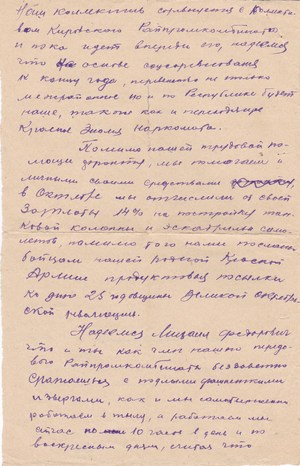 Наш коллектив соревнуется с коллекти-
вом Кировского Райпромкомбината
и пока идет впереди его, надеемся
что на основе соцсоревнования
к концу года, первенство не только
но и по Республике будет
наше, также как и переходящее
Красное Знамя Наркомата.
Помимо нашей трудовой по-
мощи фронту, мы помогаем и
личными своими средствами
в Октябре мы отчислили от своей
Зарплаты 14% на постройку тан-
ковой колонны и эскадрильи само-
летов, помимо того нами посланы
бойцам нашей родной Красной
Армии продуктовые посылки
ко дню 25 годовщины Великой октябрь-
ской революции.
Надеемся Михаил Федорович
что и ты как член нашего передо-
вого Райпромкомбината беззаветно
сражаешься с подлыми фашистскими
извергами, как и мы самоотверженно
работаем в тылу, и работаем мы
сейчас по 10 часов в день и по
воскресным дням, считая что